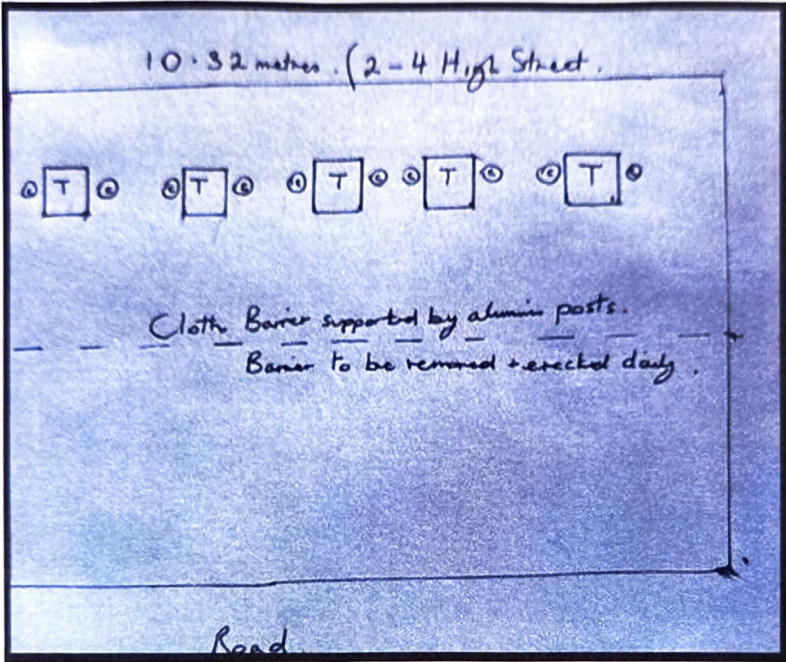 10.32 metres. (2-4 High Street.
T T T T T
Cloth Barrier supported by aluminium posts.
Barrier to be removed + erected daily.
Road